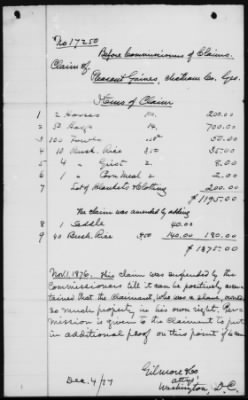 No 17250
Before Commissioners of Claims.
Claim of
Pleasant Gaines, Chatham Co, Geo.
Items of Claim
1 2 Horses 200.00
2 50 Hogs 14. 700.00
3 100 Fowls 50¢ 50.00
4 10 Bush. Rice 3.50 35.00
5 4 " Grist 2. 8.00
6 1 " Corn Meal 2. 2.00
7 Lot of Blankets & Clothing 200.00
$1195.00
The claim was amended by adding
8 1 Saddle 40.00
9 40 Bush. Rice 3.50 140.00 180.00
$1375.00
Nov. 11, 1876. This claim was suspended by the
Commissioners till it can be positively ascer-
tained that the Claimant, who was a slave, owned
so much property in his own right. Per-
mission is given to the Claimant to put
in additional proof on this point
Gilmore & Co
attys
Washington, D.C.
Dec. 4/77